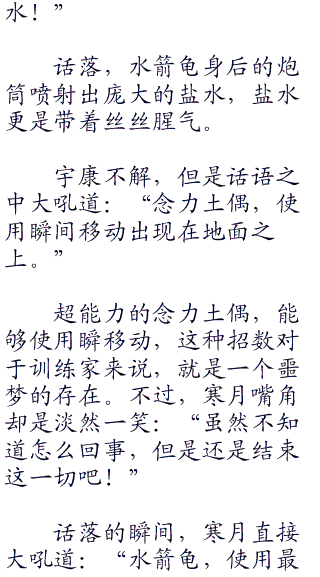 水！”
话落，水箭龟身后的炮
筒喷射出庞大的盐水，盐水
更是带着丝丝腥气。
宇康不解，但是话语之
中大吼道：“念力土偶，使
用瞬间移动出现在地面之
上。”
超能力的念力土偶，能
够使用瞬移动，这种招数对
于训练家来说，就是一个噩
梦的存在。不过，寒月嘴角
却是淡然一笑：“虽然不知
道怎么回事，但是还是结束
这一切吧！”
话落的瞬间，寒月直接
大吼道：“水箭龟，使用最